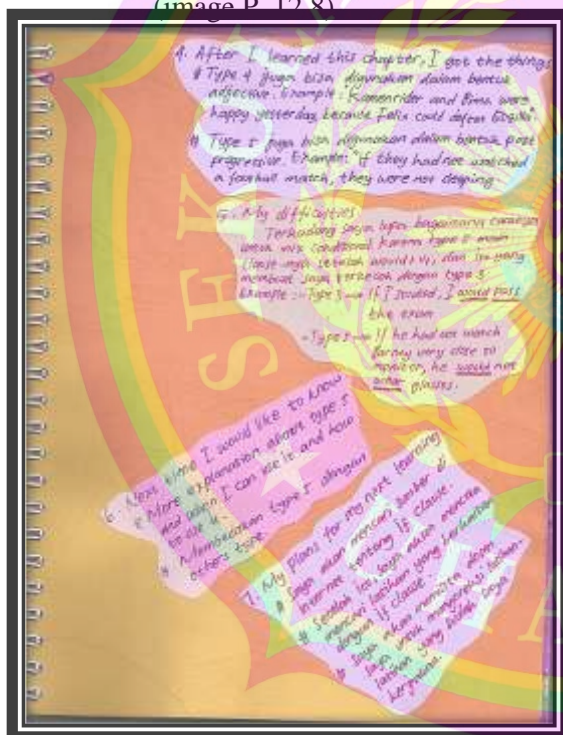 (image P. 12.8)
4. After I learned this chapter, I got the things
# Type 4 juga bisa digunakan dalam bentuk
adjective. Example: Kamenrider and Bima were
happy yesterday because Felix could defeat
# Type 5 juga bisa digunakan dalam bentuk past
progressive. Example: "If they had not watched
a football match, they were not sleeping
5. My difficulties
Terkadang saya lupa bagaimana caranya
untuk mix conditional karena type 5 main
clause nya setelah would + V1, dan itu yang
membuat saya terkecoh dengan type
Example : - Type → If I studied, I would pass
the exam
- Type 5 → If he had not watch
very close to
monitor, he would not
glasses.
6. Next time I would like to know
# More explanation about type 5
and when I can use it and how
to use it.
# Membedakan type 5 dengan
others type
7. My plans for my next learning
# Saya akan mencari sumber di
internet tentang If clause.
# Setelah itu saya akan mencoba
mencari latihan yang berhubungan
dengan If clause
# Saya akan meminta
saya untuk mengoreksi
latihan yang sudah saya
kerjakan.
SEK
TA